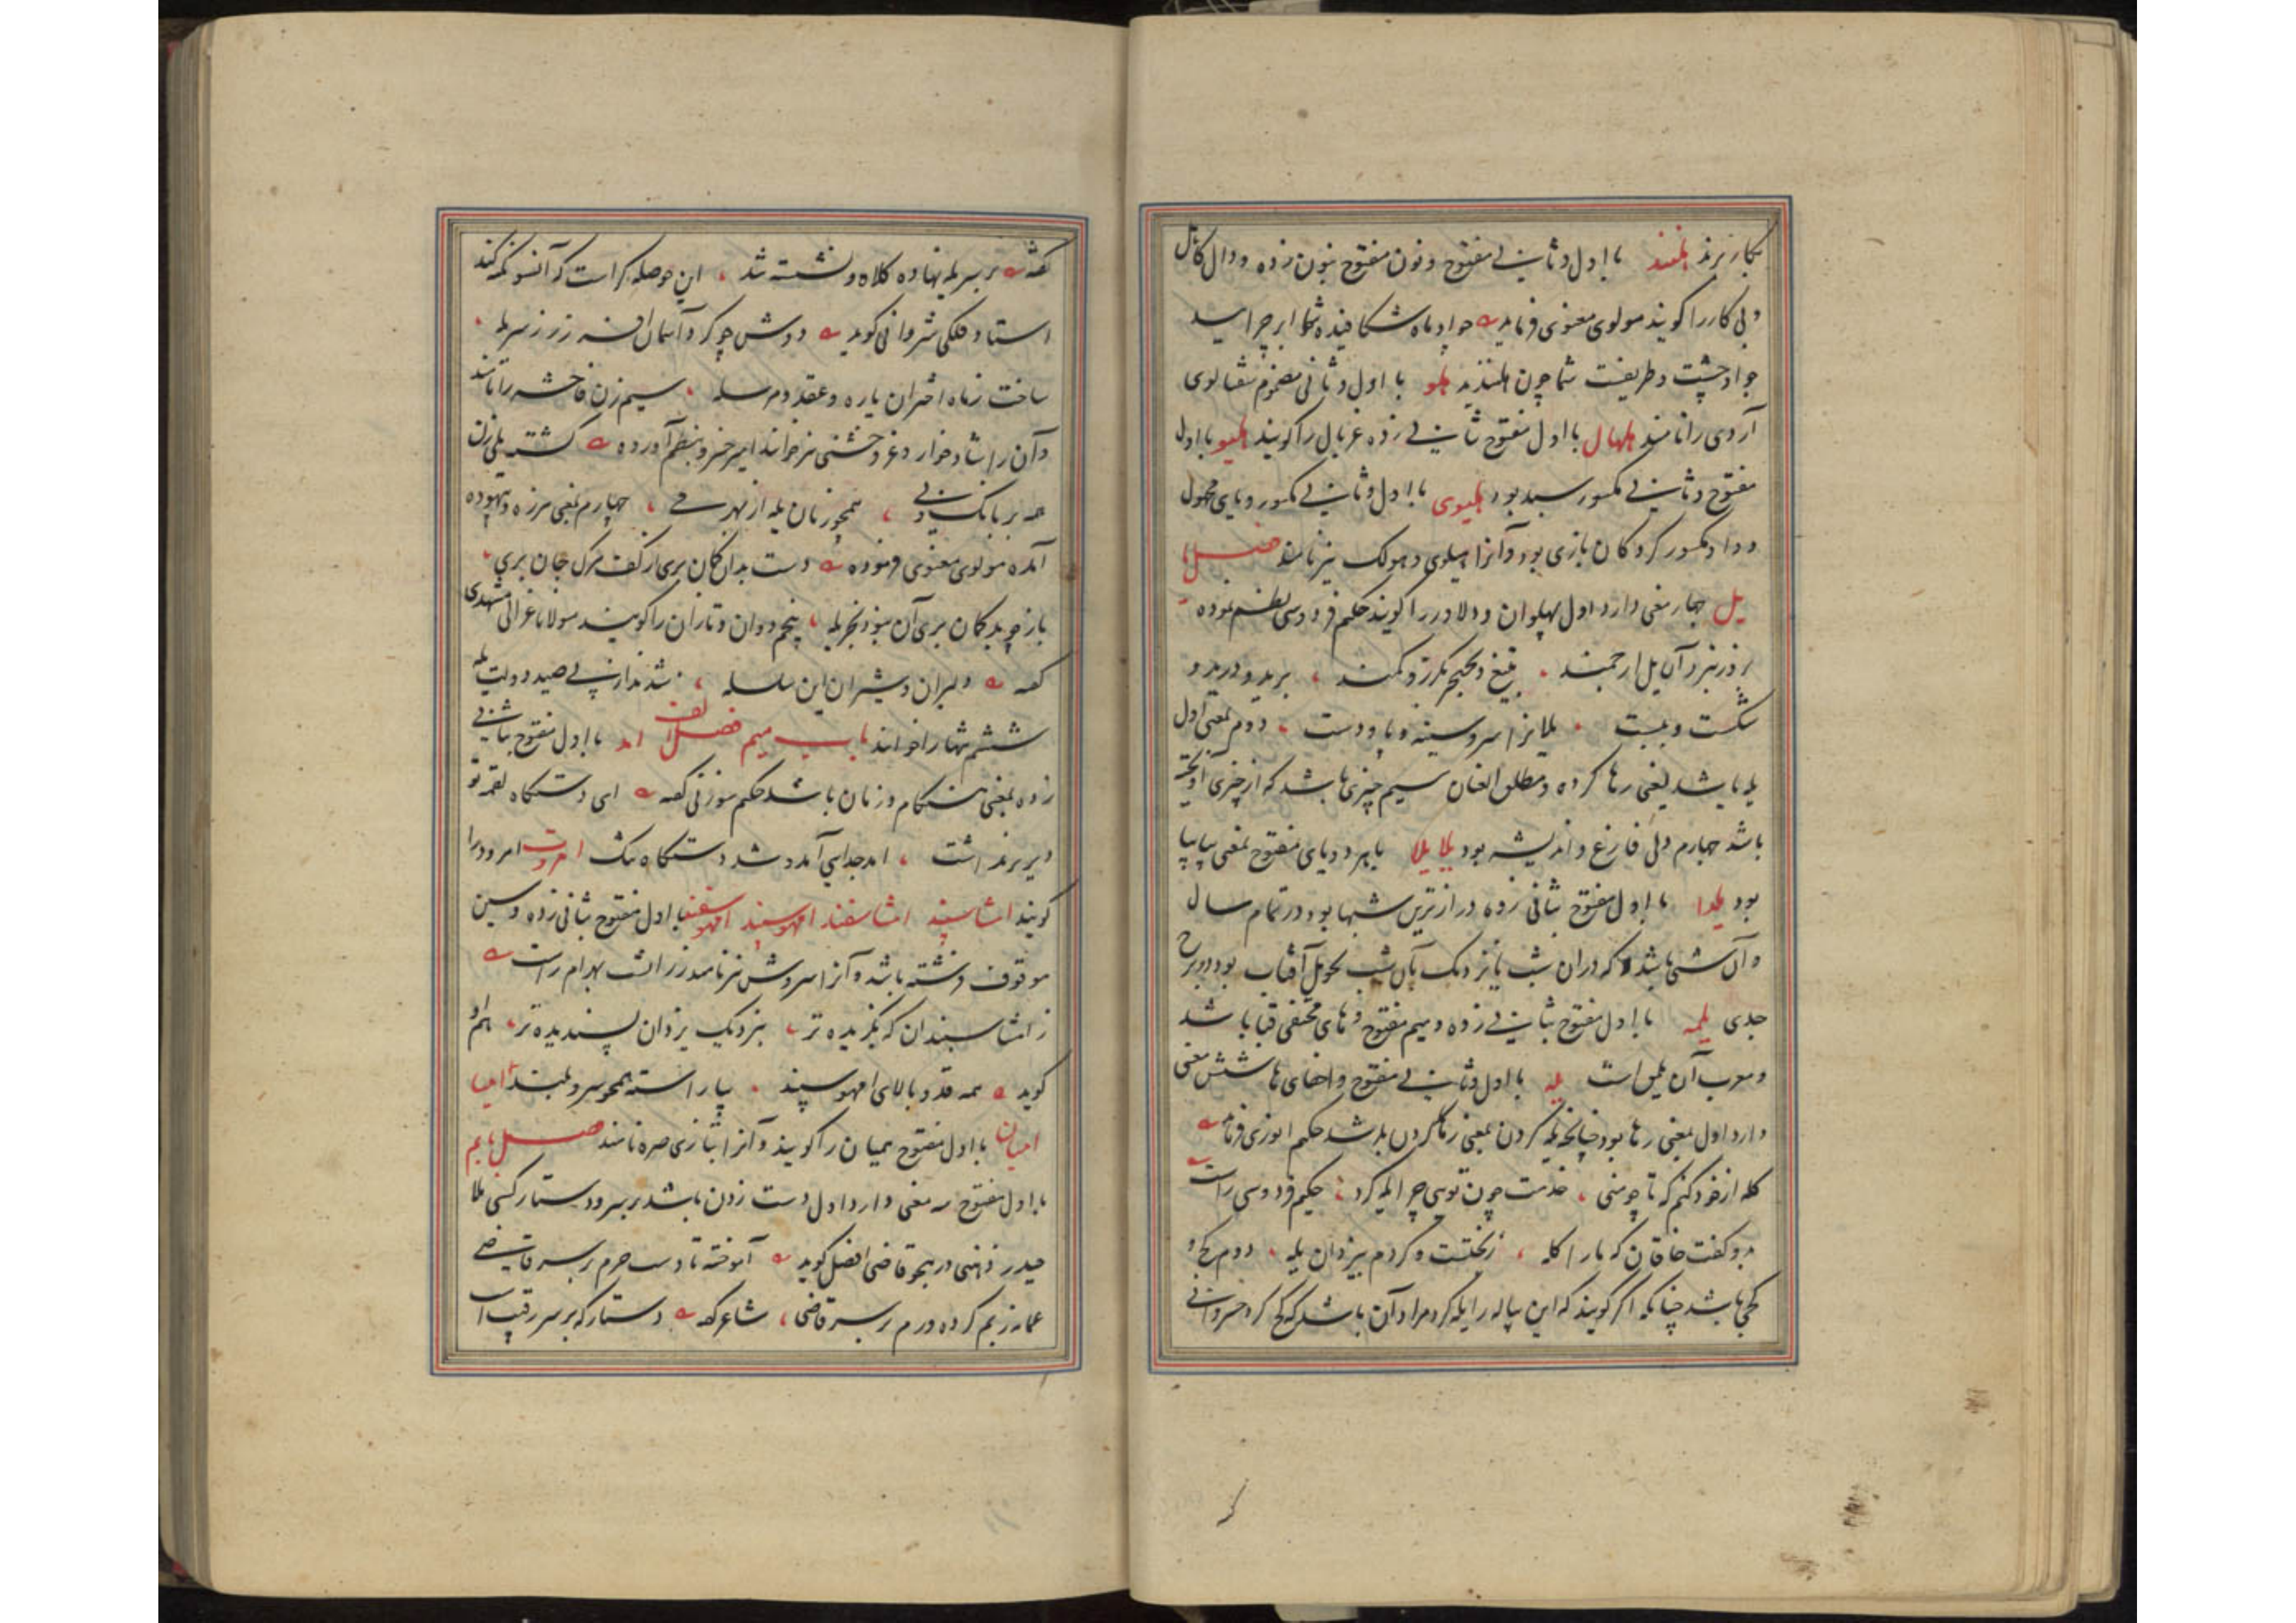 بکار برند هلند با اول و ثانی مفتوح و نون مفتوح بنون زده و دال کاهل
و بی کار را گویند مولوی معنوی فرماید جو ماه شکافیده شما ابر چرایید
چو چست و ظریفست شما چون هلندید هلو با اول و ثانی مضموم شفتالوی
آردی را نامند هلهال با اول مفتوح ثانی زده غربال را گویند هلیو با اول
مفتوح و ثانی مکسور سبد بود هلیوی با اول و ثانی مکسور و یای مجهول
و واو مکسور کردکان بازی بود و آنرا هیلوی و هولک نیز نامند فصل یا
یل چهار معنی دارد اول پهلوان و دلاور را گویند حکیم فردوسی نظم نموده
بروز نبرد آن یل ارجمند بتیغ و خنجر بگرز و کمند برید و درید و
شکست و ببست یلانرا سر و سینه و پا و دست دوم بمعنی اول
یله باشد یعنی رها کرده و مطلق العنان سیم چیزی باشد که از چیزی آویخته
باشد چهارم دلی فارغ و اندیشه بود یلا یلا بهر دو یای مفتوح بمعنی پیاپیا
بود یلدا با اول مفتوح بثانی زده درازترین شبها بود در تمام سال
و آن شبی باشد که در ان شب یا نزدیک بآن شب تحویل آفتاب بود در برج
جدی یلمه با اول مفتوح بثانی زده و میم مفتوح و های مختفی قبا باشد
و معرب آن یلمق است یله با اول و ثانی مفتوح و اخفای ها شش معنی
دارد اول بمعنی رها بود چنانچه یله کردن بمعنی رها کردن باشد حکیم انوری فرماید
کله از خود کنم که تا چو منی خدمت چون تویی چرا یله کرد حکیم فردوسی راست
بدو گفت خاقان که ما را کله زبختست و کردم بیزدان یله دوم کج و
کجی باشد چنانکه اگر گویند که این پیاله را یله کرد مراد آن باشد که کج کرد خسروانی
گفته بر سر یله نهاده کلاه و نشسته شد این حوصله کراست که آنسو نگه کند
استاد فلکی شروانی گوید دوش چو کرد آسمان افسر زر ز سر یله
ساخت ز ماه اختران یاره و عقد و مرسله سیم زن فاحشه را نامند
و آن را شادخوار و غر و جشنی نیز خوانند امیر خسرو بنظم آورده گشته یلی زن
همه بر بانک نی همچو زنان یله از بهر می چهارم بمعنی هرزه و بیهوده
آمده مولوی معنوی فرموده دست بدان کمان بری از کف مرک جان بری
باز چو بد کمان بری آن نبود بجز یله پنجم دوان و تازان را گویند مولانا غزالی مشهدی
گفته دلیران و شیران این سلسله شدند از پی صید دولت یله
ششم تنها را خوانند باب میم فصل الف امد با اول مفتوح بثانی
زده بمعنی هنگام و زمان باشد حکیم سوزنی گفته ای دستگاه لقمه تو
دیر برنداشت امد جدایی آمد و شد دستگاه تنک امروت امرود را
گویند امشاسپند امشاسفند امهوسپند امهوسفند با اول مفتوح بثانی زده و سین
موقوف فرشته باشد و آنرا سروش نیز نامند زراتشت بهرام راست
ز امشاسپندان که بگزیده تر بنزدیک یزدان پسندیده تر هم او
گوید همه قد و بالای امهوسپند بیاراسته همچو سرو بلند امیا
امیان با اول مفتوح همیان را گویند و آنرا بتازی صره نامند فصل با بم
با اول مفتوح سه معنی دارد اول دست زدن باشد بر سر و دستار کسی ملا
حیدر ذهنی در هجو قاضی افضل گوید آموخته تا دست خرم بر سر قاضی
عمامه ز بم کرده ورم بر سر قاضی شاعر گفته دستار که بر سر رقیب است